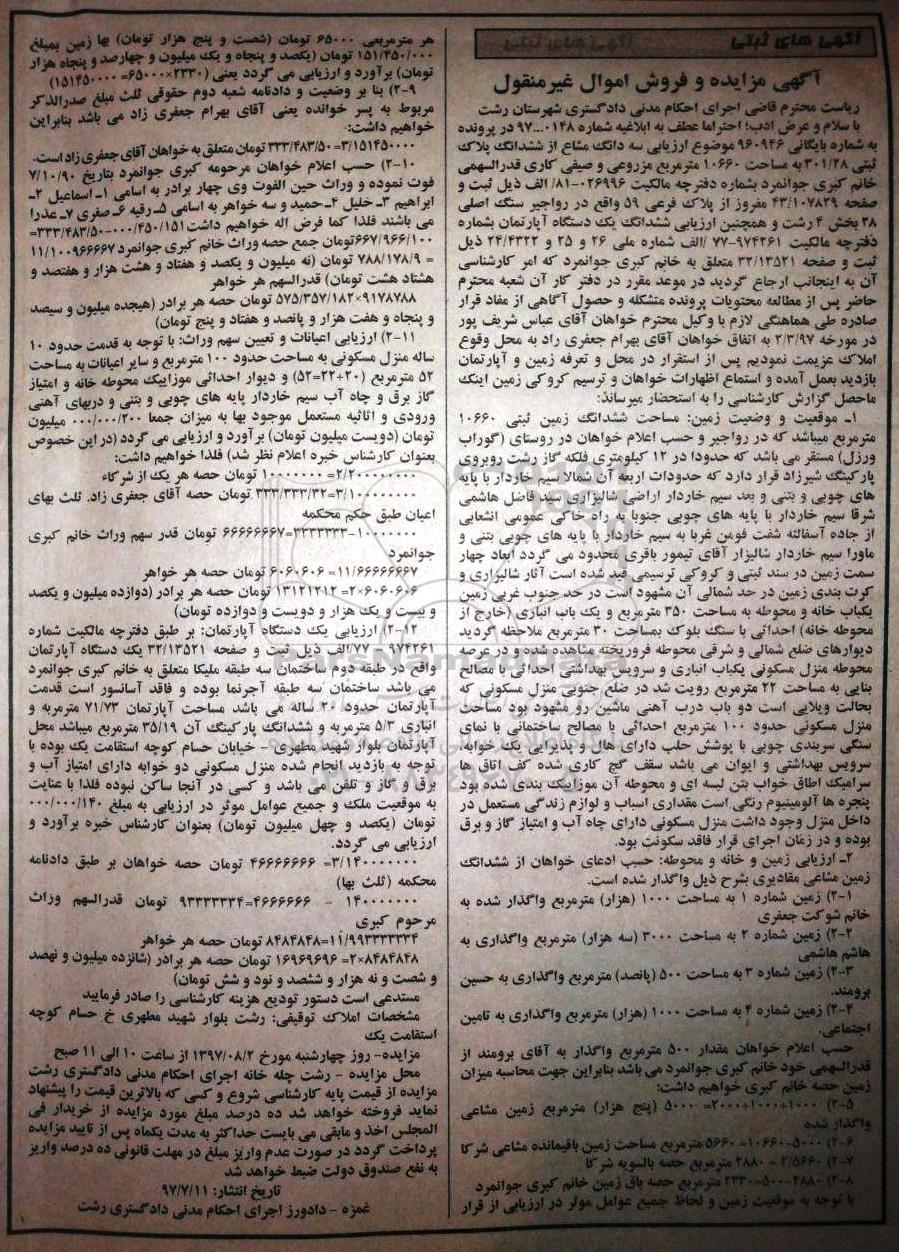 آگهی های ثبتی
آگهی مزایده و فروش اموال غیرمنقول
ریاست محترم قاضی اجرای احکام مدنی دادگستری شهرستان رشت
با سلام و عرض ادب؛ احتراما عطف به ابلاغیه شماره ۰۱۴۸...۹۷ در پرونده
به شماره بایگانی ۹۶۰۹۴۶ موضوع ارزیابی سه دانک مشاع از ششدانک پلاک
ثبتی ۳۰۱/۲۸ به مساحت ۱۰۶۶۰ مترمربع مزروعی و صیفی کاری قدرالسهمی
خانم کبری جوانمرد بشماره دفترچه مالکیت ۰۲۶۹۹۶-۸۱/ الف ذیل ثبت و
صفحه ۴۳/۱۰۷۸۲۹ مفروز از پلاک فرعی ۵۹ واقع در رواجیر سنگ اصلی
۲۸ بخش ۴ رشت و همچنین ارزیابی ششدانگ یک دستگاه آپارتمان بشماره
دفترچه مالکیت ۹۷۴۲۶۱-۷۷ /الف شماره ملی ۲۶ و ۲۵ و ۲۴/۴۳۲۲ ذیل
ثبت و صفحه ۳۲/۱۳۵۲۱ متعلق به خانم کبری جوانمرد که امر کارشناسی
آن به اینجانب ارجاع گردید در موعد مقرر در دفتر کار آن شعبه محترم
حاضر پس از مطالعه محتویات پرونده متشکله و حصول آگاهی از مفاد قرار
صادره طی هماهنگی لازم با وکیل محترم خواهان آقای عباس شریف پور
در مورخه ۲/۳/۹۷ به اتفاق خواهان آقای بهرام جعفری راد به محل وقوع
املاک عزیمت نمودیم پس از استقرار در محل و تعرفه زمین و آپارتمان
بازدید بعمل آمده و استماع اظهارات خواهان و ترسیم کروکی زمین اینک
ماحصل گزارش کارشناسی را به استحضار میرساند:
۱ـ موقعیت و وضعیت زمین: مساحت ششدانک زمین ثبتی ۱۰۶۶۰
مترمربع میباشد که در رواجیر و حسب اعلام خواهان در روستای (گوراب
ورزل) مستقر می باشد که حدودا در ۱۲ کیلومتری فلکه گاز رشت روبروی
پارکینگ شیرزاد قرار دارد که حدودات اربعه آن شمالا سیم خاردار با پایه
های چوبی و بتنی و بعد سیم خاردار اراضی شالیزاری سید فاضل هاشمی
شرقا سیم خاردار با پایه های چوبی جنوبا به راه خاکی عمومی انشعابی
از جاده آسفالته شفت فومن غربا به سیم خاردار با پایه های چوبی بتنی و
ماورا سیم خاردار شالیزار آقای تیمور باقری محدود می گردد ابعاد چهار
سمت زمین در سند ثبتی و کروکی ترسیمی قید شده است آثار شالیزاری و
کرت بندی زمین در حد شمالی آن مشهود است در حد جنوب غربی زمین
یکباب خانه و محوطه به مساحت ۳۵۰ مترمربع و یک باب انباری (خارج از
محوطه خانه) احداثی با سنگ بلوک بمساحت ۳۰ مترمربع ملاحظه گردید
دیوارهای ضلع شمالی و شرقی محوطه فروریخته مشاهده شده و در عرصه
محوطه منزل مسکونی یکباب انباری و سرویس بهداشتی احداثی با مصالح
بنایی به مساحت ۲۲ مترمربع رویت شد در ضلع جنوبی منزل مسکونی که
بحالت ویلایی است دو باب درب آهنی ماشین رو مشهود بود مساحت
منزل مسکونی حدود ۱۰۰ مترمربع احداثی با مصالح ساختمانی با نمای
سنگی سربندی چوبی با پوشش حلب دارای هال و پذیرایی یک خوابه،
سرویس بهداشتی و ایوان می باشد سقف گچ کاری شده کف اتاق ها
سرامیک اطاق خواب بتن لیسه ای و محوطه آن موزاییک بندی شده بود
پنجره ها آلومینیوم رنگی است مقداری اسباب و لوازم زندگی مستعمل در
داخل منزل وجود داشت منزل مسکونی دارای چاه آب و امتیاز گاز و برق
بوده و در زمان اجرای قرار فاقد سکونت بود.
۲ـ ارزیابی زمین و خانه و محوطه: حسب ادعای خواهان از ششدانک
زمین مشاعی مقادیری بشرح ذیل واگذار شده است.
۲-۱) زمین شماره ۱ به مساحت ۱۰۰۰ (هزار) مترمربع واگذار شده به
خانم شوکت جعفری
۲-۲) زمین شماره ۲ به مساحت ۳۰۰۰ (سه هزار) مترمربع واگذاری به
هاشم هاشمی
۲-۳) زمین شماره ۳ به مساحت ۵۰۰ (پانصد) مترمربع واگذاری به حسین
برومند.
۲-۴) زمین شماره ۴ به مساحت ۱۰۰۰ (هزار) مترمربع واگذاری به تامین
اجتماعی.
حسب اعلام خواهان مقدار ۵۰۰ مترمربع واگذار به آقای برومند از
قدرالسهمی خود خانم کبری جوانمرد می باشد بنابراین جهت محاسبه میزان
زمین حصه خانم کبری خواهیم داشت:
۲-۵) ۱۰۰۰+۱۰۰۰+۳۰۰۰= ۵۰۰۰ (پنج هزار) مترمربع زمین مشاعی
واگذار شده
۲-۶) ۵۰۰۰-۱۰۶۶۰=۵۶۶۰ مترمربع مساحت زمین باقیمانده مشاعی شرکا
۲-۷) ۲/۵۶۶۰ = ۲۸۸۰ مترمربع حصه بالسویه شرکا
۲-۸) ۲۸۸۰-۵۰۰=۲۳۳۰ مترمربع حصه باق زمین خانم کبری جوانمرد
با توجه به موقعیت زمین و لحاظ جمیع عوامل موثر در ارزیابی از قرار
هر مترمربعی ۶۵۰۰۰ تومان (شصت و پنج هزار تومان) بها زمین بمبلغ
۱۵۱/۴۵۰/۰۰۰ تومان (یکصد و پنجاه و یک میلیون و چهارصد و پنجاه هزار
تومان) برآورد و ارزیابی می گردد یعنی (۲۳۳۰×۶۵۰۰۰= ۱۵۱۴۵۰۰۰۰)
۲-۹) بنا بر وضعیت و دادنامه شعبه دوم حقوقی ثلث مبلغ صدرالذکر
مربوط به پسر خوانده یعنی آقای بهرام جعفری زاد می باشد بنابراین
خواهیم داشت:
۳/۱۵۱۴۵۰۰۰۰= ۳۳۳/۴۸۳/۵۰ تومان متعلق به خواهان آقای جعفری زاد است.
۲-۱۰) حسب اعلام خواهان مرحومه کبری جوانمرد بتاریخ ۷/۱۰/۹۰
فوت نموده و وراث حین الفوت وی چهار برادر به اسامی ۱ـ اسماعیل ۲ـ
ابراهیم ۳ـ خلیل ۴ـ حمید و سه خواهر به اسامی ۵ـ رقیه ۶ـ صغری ۷ـ عذرا
می باشند فلذا کما فرض اله خواهیم داشت ۰۰۰/۴۵۰/۱۵۱-۳۳۳/۴۸۳/۵۰=
۶۶۷/۹۶۶/۱۰۰ تومان جمع حصه وراث خانم کبری جوانمرد ۱۱/۱۰۰۹۶۶۶۶۷
= ۷۸۸/۱۷۸/۹ تومان (نه میلیون و یکصد و هفتاد و هشت هزار و هفتصد و
هشتاد هشت تومان) قدرالسهم هر خواهر
۹۱۷۸۷۸۸×۲=۵۷۵/۳۵۷/۱۸ تومان حصه هر برادر (هیجده میلیون و سیصد
و پنجاه و هفت هزار و پانصد و هفتاد و پنج تومان)
۲-۱۱) ارزیابی اعیانات و تعیین سهم وراث: با توجه به قدمت حدود ۱۰
ساله منزل مسکونی به مساحت حدود ۱۰۰ مترمربع و سایر اعیانات به مساحت
۵۲ مترمربع (۳۰+۲۲=۵۲) و دیوار احداثی موزاییک محوطه خانه و امتیاز
گاز برق و چاه آب سیم خاردار پایه های چوبی و بتنی و دربهای آهنی
ورودی و اثاثیه مستعمل موجود بها به میزان جمعا ۰۰۰/۰۰۰/۲۰۰ میلیون
تومان (دویست میلیون تومان) برآورد و ارزیابی می گردد (در این خصوص
بعنوان کارشناس خبره اعلام نظر شد) فلذا خواهیم داشت:
۲/۲۰۰۰۰۰۰۰۰= ۱۰۰۰۰۰۰۰۰ تومان حصه هر یک از شرکاء
۳/۱۰۰۰۰۰۰۰۰= ۳۳۳/۳۳۳/۳۳ تومان حصه آقای جعفری زاد. ثلث بهای
اعیان طبق حکم محکمه
۱۰۰۰۰۰۰۰۰-۳۳۳۳۳۳۳۳=۶۶۶۶۶۶۶۷ تومان قدر سهم وراث خانم کبری
جوانمرد
۱۱/۶۶۶۶۶۶۶۷= ۶۰۶۰۶۰۶ تومان حصه هر خواهر
۶۰۶۰۶۰۶×۲= ۱۲۱۲۱۲۱۲ تومان حصه هر برادر (دوازده میلیون و یکصد
و بیست و یک هزار و دویست و دوازده تومان)
۲-۱۲) ارزیابی یک دستگاه آپارتمان: بر طبق دفترچه مالکیت شماره
۹۷۴۲۶۱-۷۷/الف ذیل ثبت و صفحه ۳۲/۱۳۵۲۱ یک دستگاه آپارتمان
واقع در طبقه دوم ساختمان سه طبقه ملیکا متعلق به خانم کبری جوانمرد
می باشد ساختمان سه طبقه آجرنما بوده و فاقد آسانسور است قدمت
آپارتمان حدود ۲۰ ساله می باشد مساحت آپارتمان ۷۱/۷۳ مترمربه و
انباری ۵/۳ مترمربه و ششدانگ پارکینگ آن ۳۵/۱۹ مترمربع میباشد محل
آپارتمان بلوار شهید مطهری - خیابان حسام کوچه استقامت یک بوده با
توجه به بازدید انجام شده منزل مسکونی دو خوابه دارای امتیاز آب و
برق و گاز و تلفن می باشد و کسی در آنجا ساکن نبوده فلذا با عنایت
به موقعیت ملک و جمیع عوامل موثر در ارزیابی به مبلغ ۰۰۰/۰۰۰/۱۴۰
تومان (یکصد و چهل میلیون تومان) بعنوان کارشناس خبره برآورد و
ارزیابی می گردد.
۳/۱۴۰۰۰۰۰۰۰= ۴۶۶۶۶۶۶۶ تومان حصه خواهان بر طبق دادنامه
محکمه (ثلث بها)
۱۴۰۰۰۰۰۰۰ - ۴۶۶۶۶۶۶=۹۳۳۳۳۳۳۴ تومان قدرالسهم وراث
مرحوم کبری
۱۱/۹۹۳۳۳۳۳۴=۸۴۸۴۸۴۸ تومان حصه هر خواهر
۸۴۸۴۸۴۸×۲= ۱۶۹۶۹۶۹۶ تومان حصه هر برادر (شانزده میلیون و نهصد
و شصت و نه هزار و ششصد و نود و شش تومان)
مستدعی است دستور تودیع هزینه کارشناسی را صادر فرمایید
مشخصات املاک توقیفی: رشت بلوار شهید مطهری خ حسام کوچه
استقامت یک
مزایده- روز چهارشنبه مورخ ۱۳۹۷/۰۸/۲ از ساعت ۱۰ الی ۱۱ صبح
محل مزایده - رشت چله خانه اجرای احکام مدنی دادگستری رشت
مزایده از قیمت پایه کارشناسی شروع و کسی که بالاترین قیمت را پیشنهاد
نماید فروخته خواهد شد ده درصد مبلغ مورد مزایده از خریدار فی
المجلس اخذ و مابقی می بایست حداکثر به مدت یکماه پس از تایید مزایده
پرداخت گردد در صورت عدم واریز مبلغ در مهلت قانونی ده درصد واریز
به نفع صندوق دولت ضبط خواهد شد
تاریخ انتشار: ۹۷/۷/۱۱
غمزه - دادورز اجرای احکام مدنی دادگستری رشت